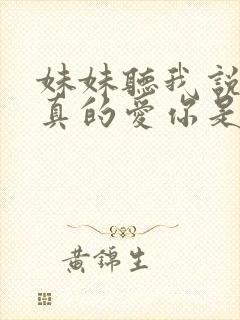 妹妹聽我說
真的愛你是
黃錦生